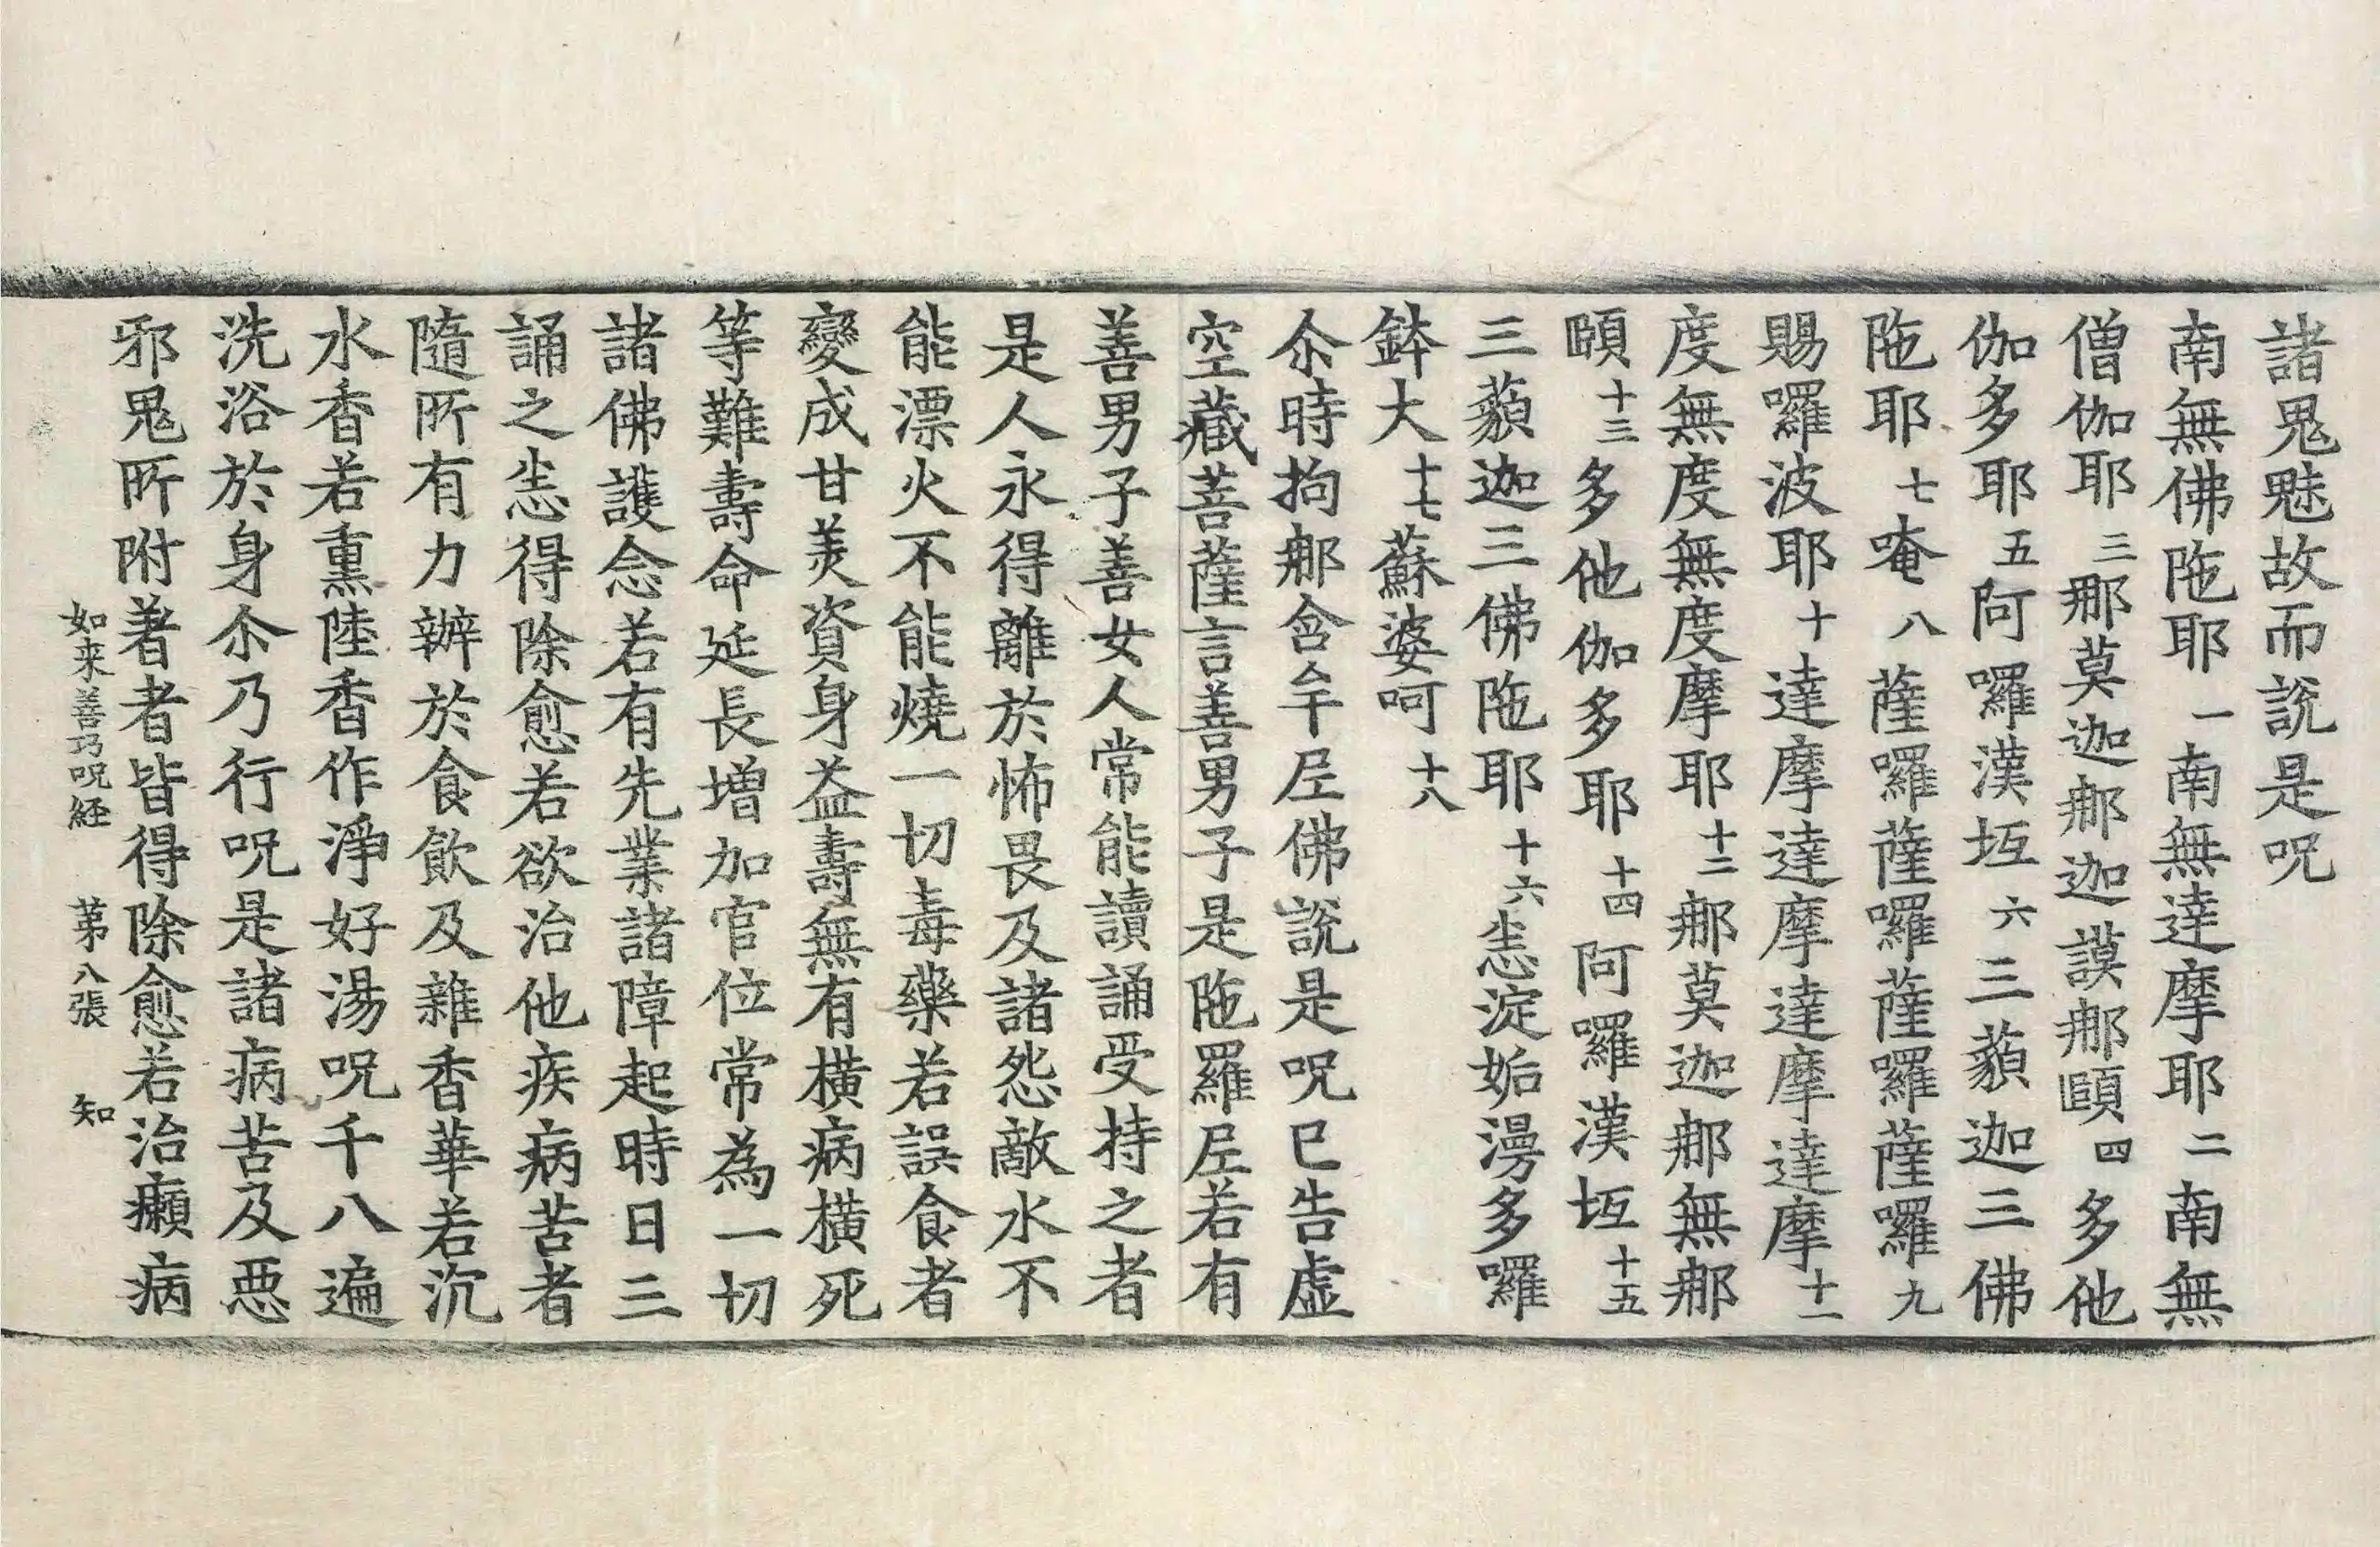 諸鬼魅故而說是呪
南無佛陁耶一南無達摩耶二南無
僧伽耶三那莫迦那迦謨那頤四多他
伽多耶五阿囉漢垣六三藐迦三佛
陁耶七唵八薩囉薩囉薩囉薩囉九
賜囉波耶十達摩達摩達摩達摩十一
度無度無度摩耶十二那莫迦那無那
頤十三多他伽多耶十四阿囉漢垣十五
三藐迦三佛陁耶十六恙淀姤漫多囉
鉢大十七蘇婆呵十八
尒時拘那含牟𡰱佛說是呪已告虛
空藏菩薩言善男子是陁羅𡰱若有
善男子善女人常能讀誦受持之者
是人永得離於怖畏及諸怨敵水不
能漂火不能燒一切毒藥若誤食者
變成甘美資身益壽無有橫病橫死
等難壽命延長增加官位常為一切
諸佛護念若有先業諸障起時日三
誦之恙得除愈若欲治他疾病苦者
隨所有力辦於食飲及雜香華若沉
水香若熏陸香作淨好湯呪千八遍
洗浴於身尒乃行呪是諸病苦及惡
邪鬼所附著者皆得除愈若治癲病
如来善巧呪経 第八張 知